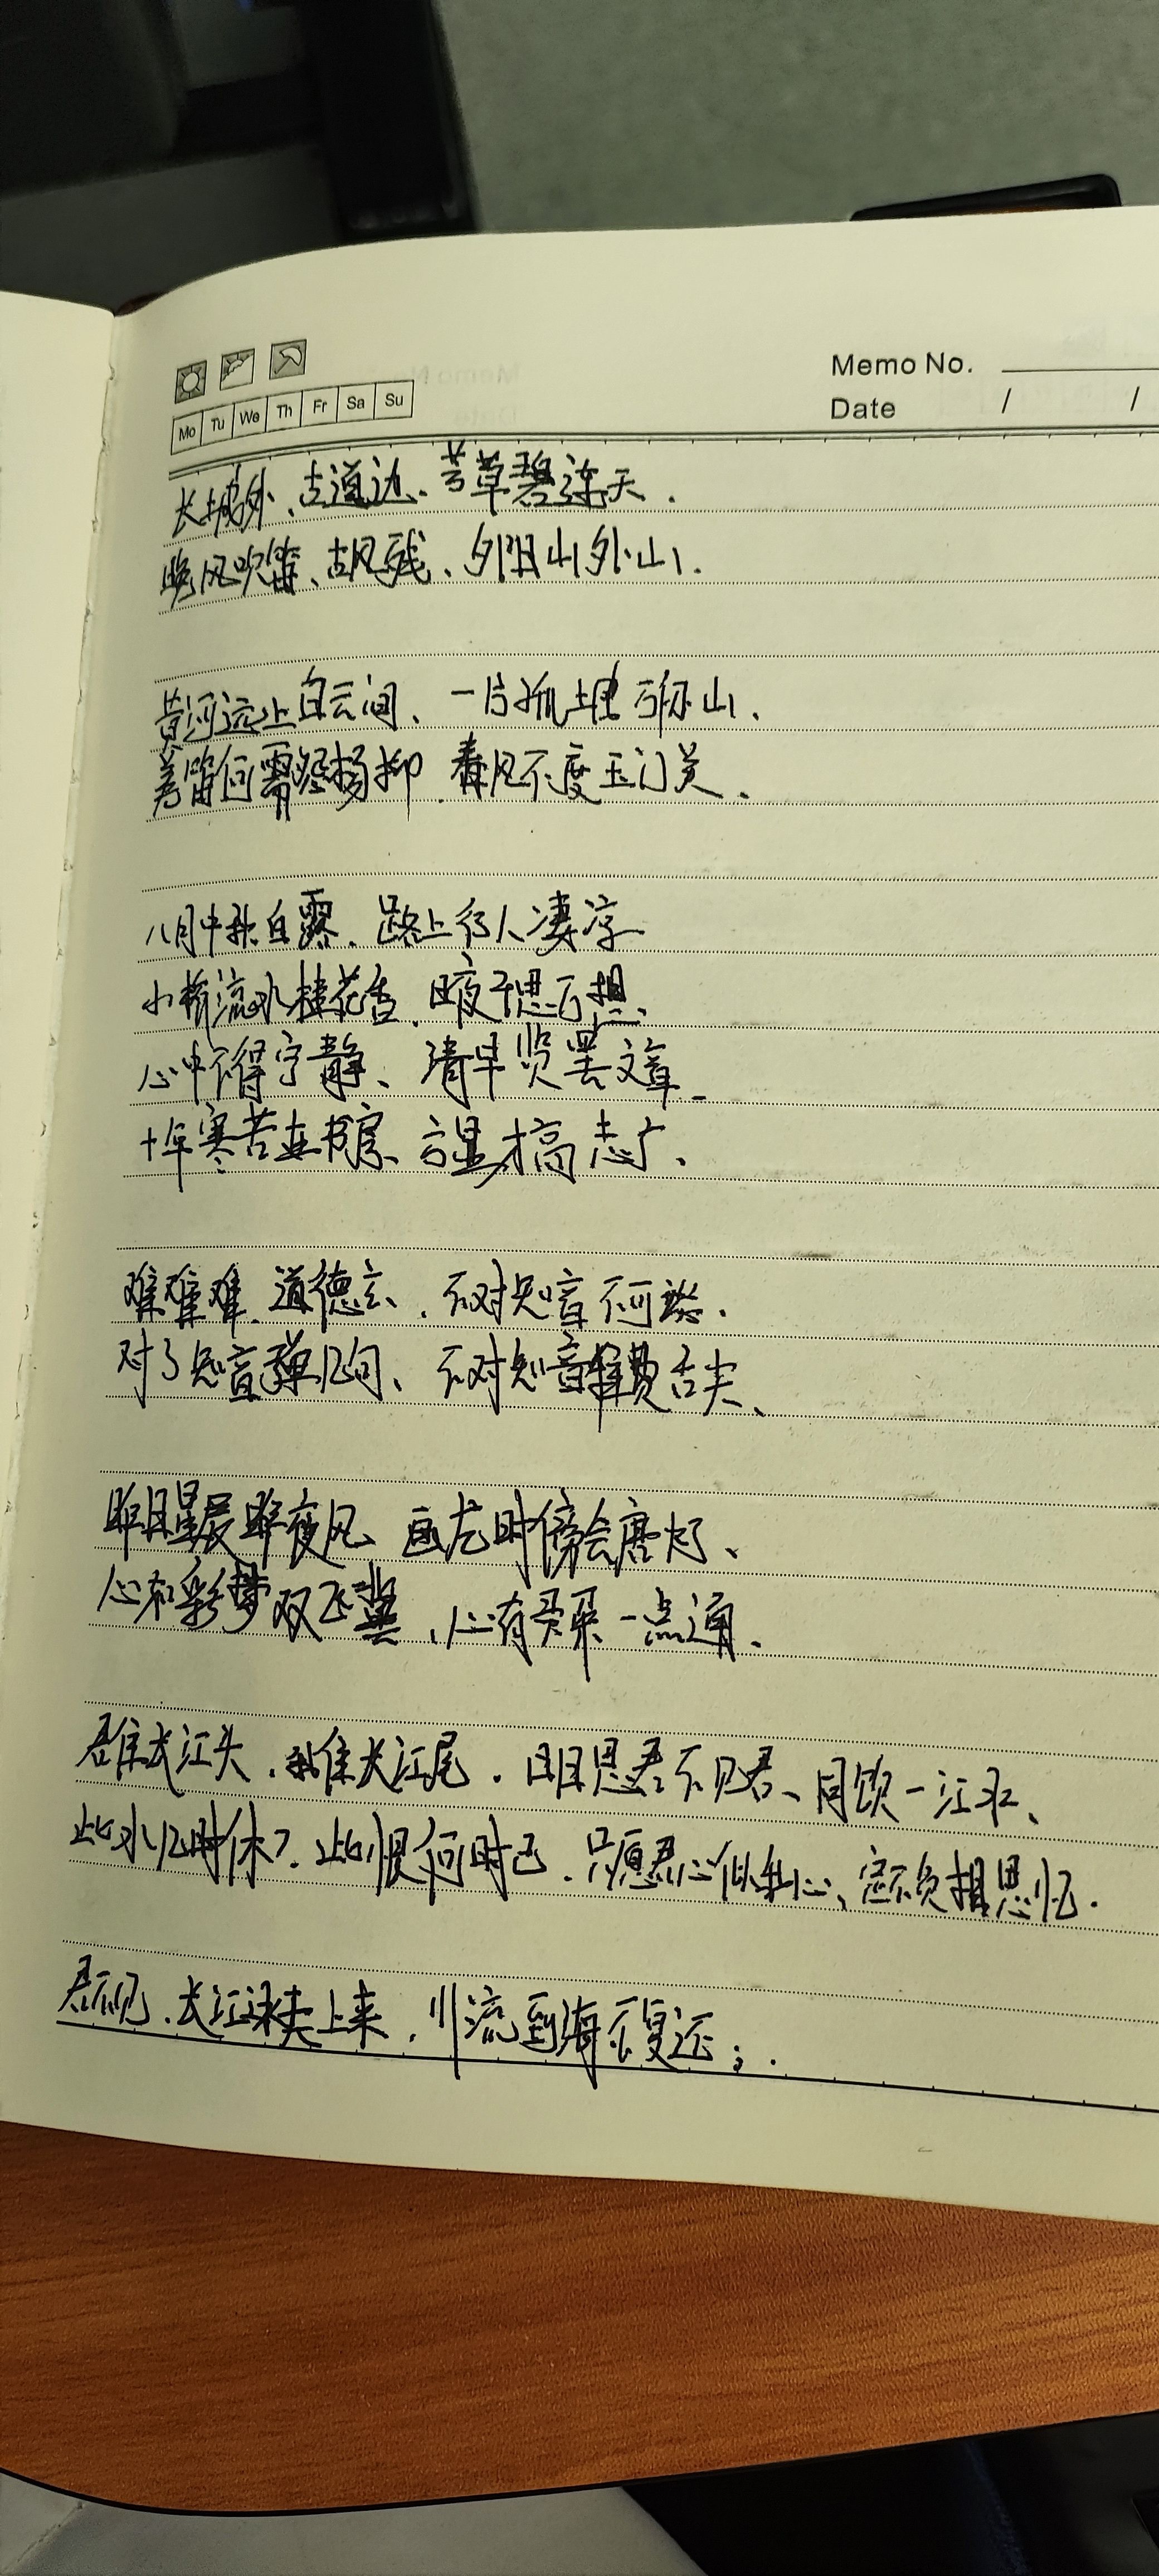 Mo Tu We Th Fr Sa Su
Memo No.
Date / /
长城外、古道边、芳草碧连天.
晚风吹笛、古风残、夕阳山外山.
黄河远上白云间、一片孤城万仞山.
羌笛何需怨杨柳.春风不度玉门关.
八月中秋白露.路上行人凄凉
小桥流水桂花香.日夜千思万想.
心中不得宁静、清早览罢文章.
十年寒苦在书房、方显才高志广.
难难难.道德玄.不对知音不可谈.
对了知音弹几句、不对知音费舌尖、
昨日星辰昨夜风 画龙时傍会唐灯、
心有彩梦双飞翼、心有灵犀一点通、
君住长江头.我住长江尾.日日思君不见君、同饮一江水、
此水几时休?.此恨何时已.只愿君心似我心、定不负相思忆.
君不见.长江水天上来.川流到海不复还;.